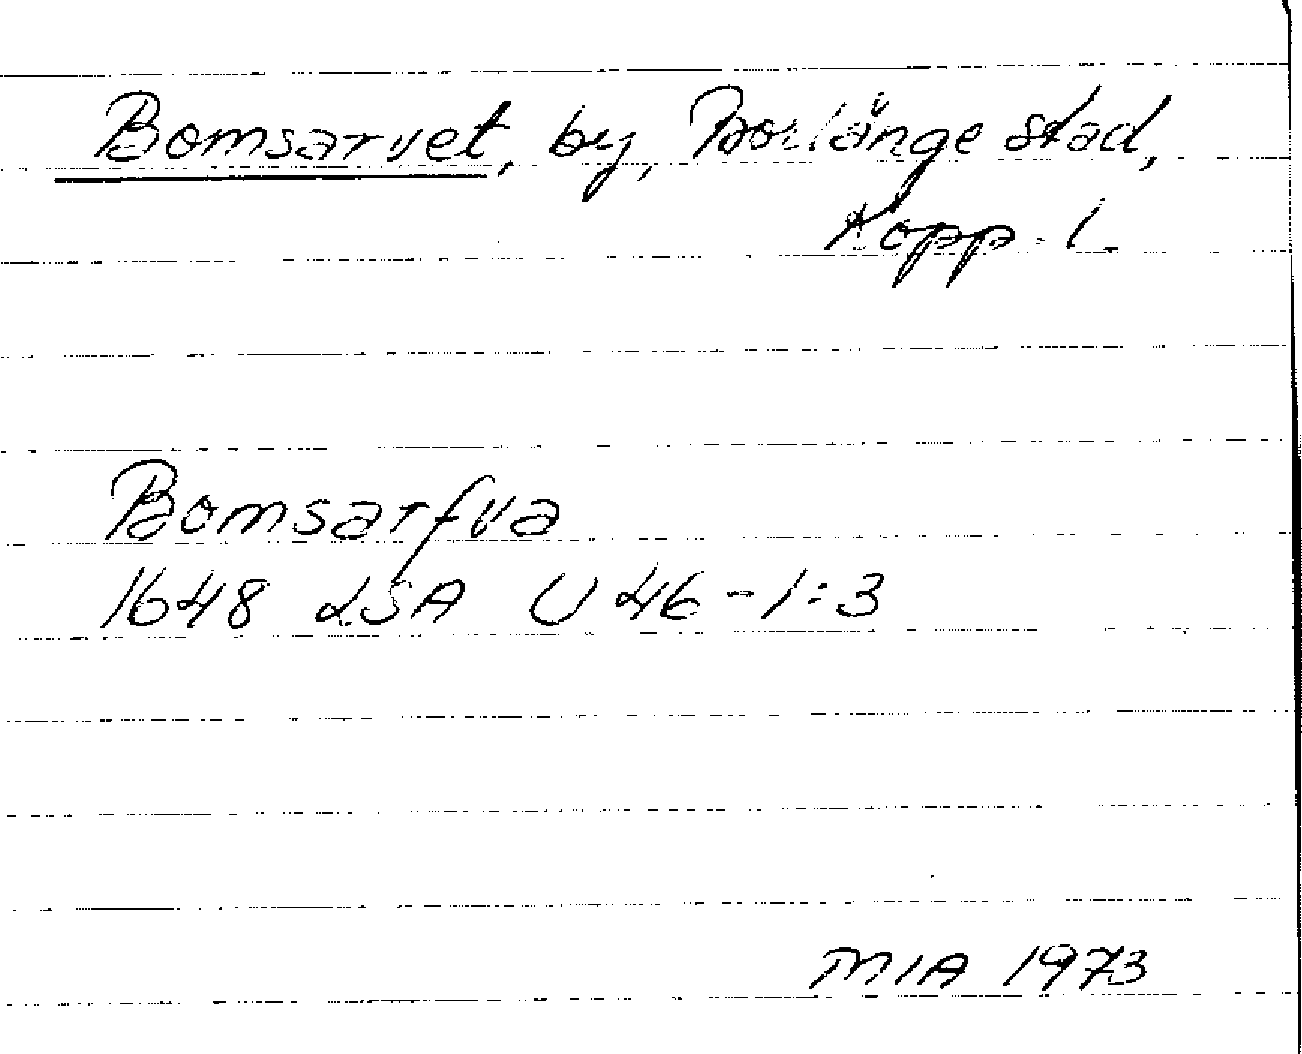 Bomsarvet, by, Borlänge stad,
Kopp. l.
Bomsarfva
1648 LSA U 46-1:3
MIA 1973